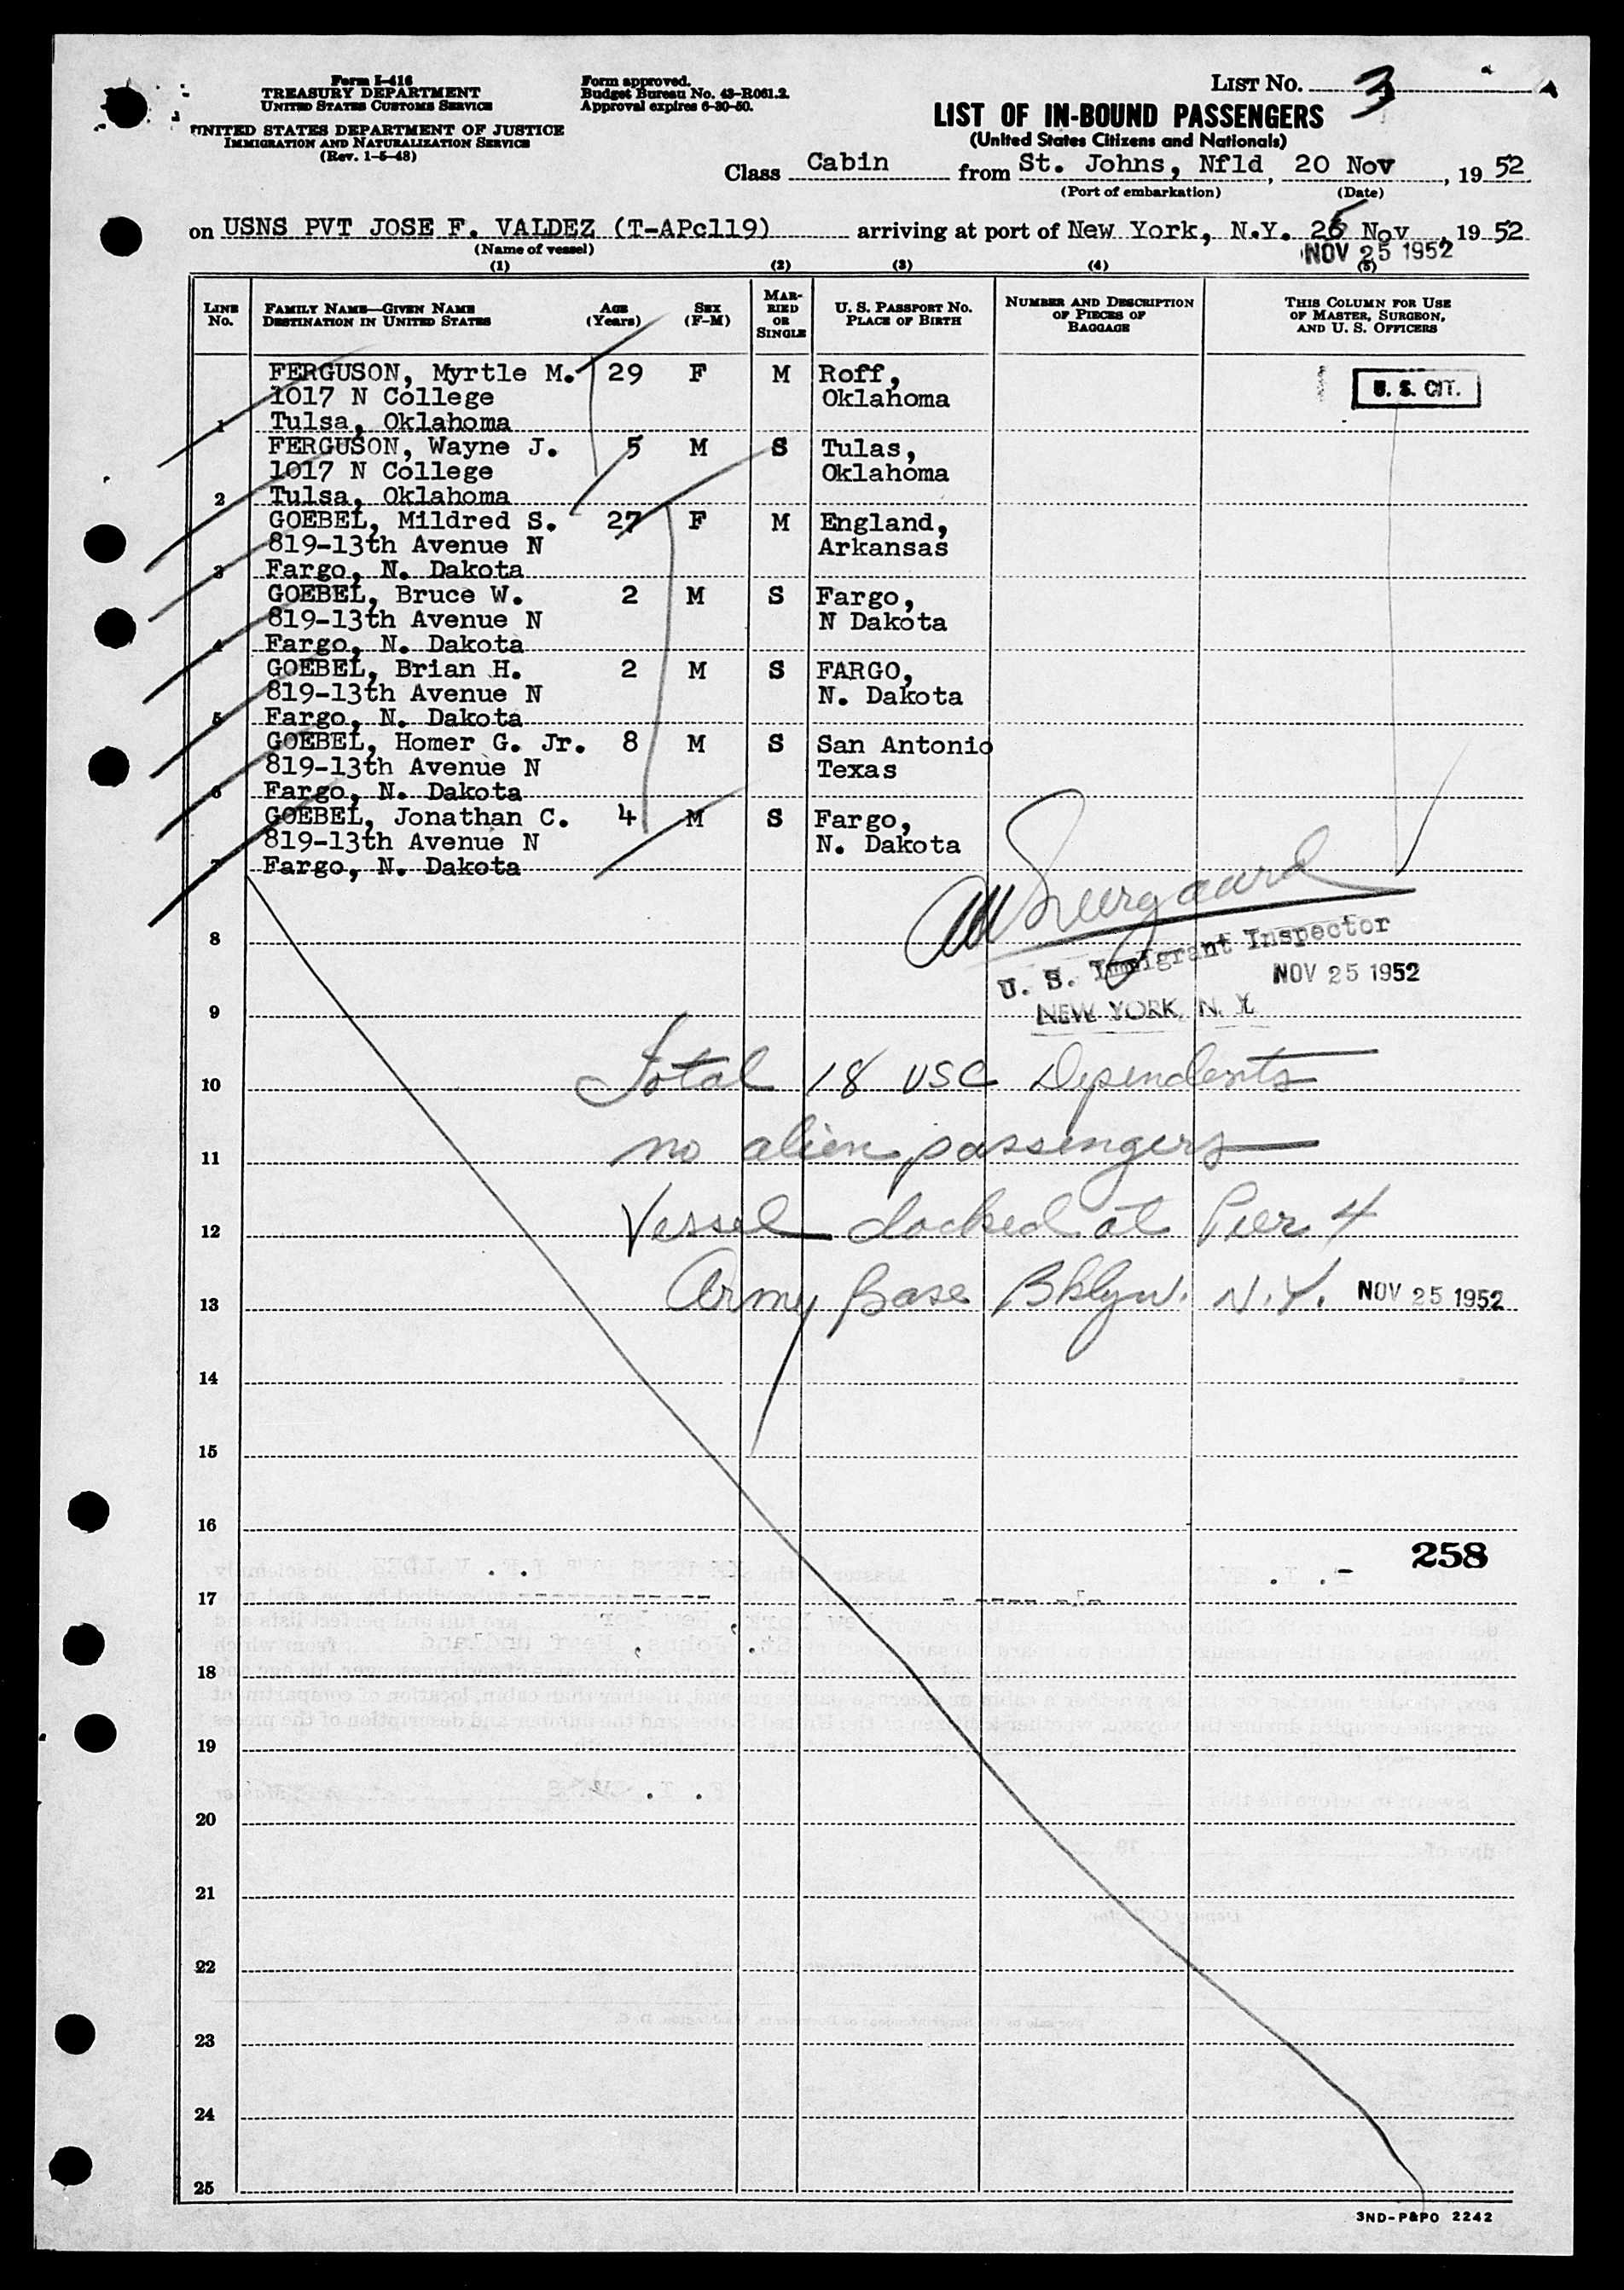 Form I-416
TREASURY DEPARTMENT
UNITED STATES CUSTOMS SERVICE
UNITED STATES DEPARTMENT OF JUSTICE
IMMIGRATION AND NATURALIZATION SERVICE
(Rev. 1-5-48)
Form approved.
Budget Bureau No. 43-R061.2.
Approval expires 6-30-50.
LIST NO. 3
LIST OF IN-BOUND PASSENGERS
(United States Citizens and Nationals)
Class Cabin from St. Johns, Nfld, 20 Nov, 19 52
(Port of embarkation) (Date)
on USNS PVT JOSE F. VALDEZ (T-APc119) arriving at port of New York, N.Y. 25 Nov, 19 52
(Name of vessel) NOV 25 1952
(1) (2) (3) (4) (5)
LINE NO. FAMILY NAME—GIVEN NAME DESTINATION IN UNITED STATES AGE (Years) SEX (F-M) MARRIED OR SINGLE U. S. PASSPORT NO. PLACE OF BIRTH NUMBER AND DESCRIPTION OF PIECES OF BAGGAGE THIS COLUMN FOR USE OF MASTER, SURGEON, AND U. S. OFFICERS
FERGUSON, Myrtle M. 29 F M Roff,
1017 N College Oklahoma U. S. CIT.
1 Tulsa, Oklahoma
FERGUSON, Wayne J. 5 M S Tulas,
1017 N College Oklahoma
2 Tulsa, Oklahoma
GOEBEL, Mildred S. 27 F M England,
819-13th Avenue N Arkansas
3 Fargo, N. Dakota
GOEBEL, Bruce W. 2 M S Fargo,
819-13th Avenue N N Dakota
4 Fargo, N. Dakota
GOEBEL, Brian H. 2 M S FARGO,
819-13th Avenue N N. Dakota
5 Fargo, N. Dakota
GOEBEL, Homer G. Jr. 8 M S San Antonio
819-13th Avenue N Texas
6 Fargo, N. Dakota
GOEBEL, Jonathan C. 4 M S Fargo,
819-13th Avenue N N. Dakota
7 Fargo, N. Dakota
8
U. S. Immigrant Inspector
NOV 25 1952
9 NEW YORK, N. Y.
10 Total 18 USC Dependents
11 no alien passengers
12 Vessel docked at Pier 4
13 Army Base Bklyn. N.Y. NOV 25 1952
14
15
16
258
17
18
19
20
21
22
23
24
25
3ND-P&PO 2242